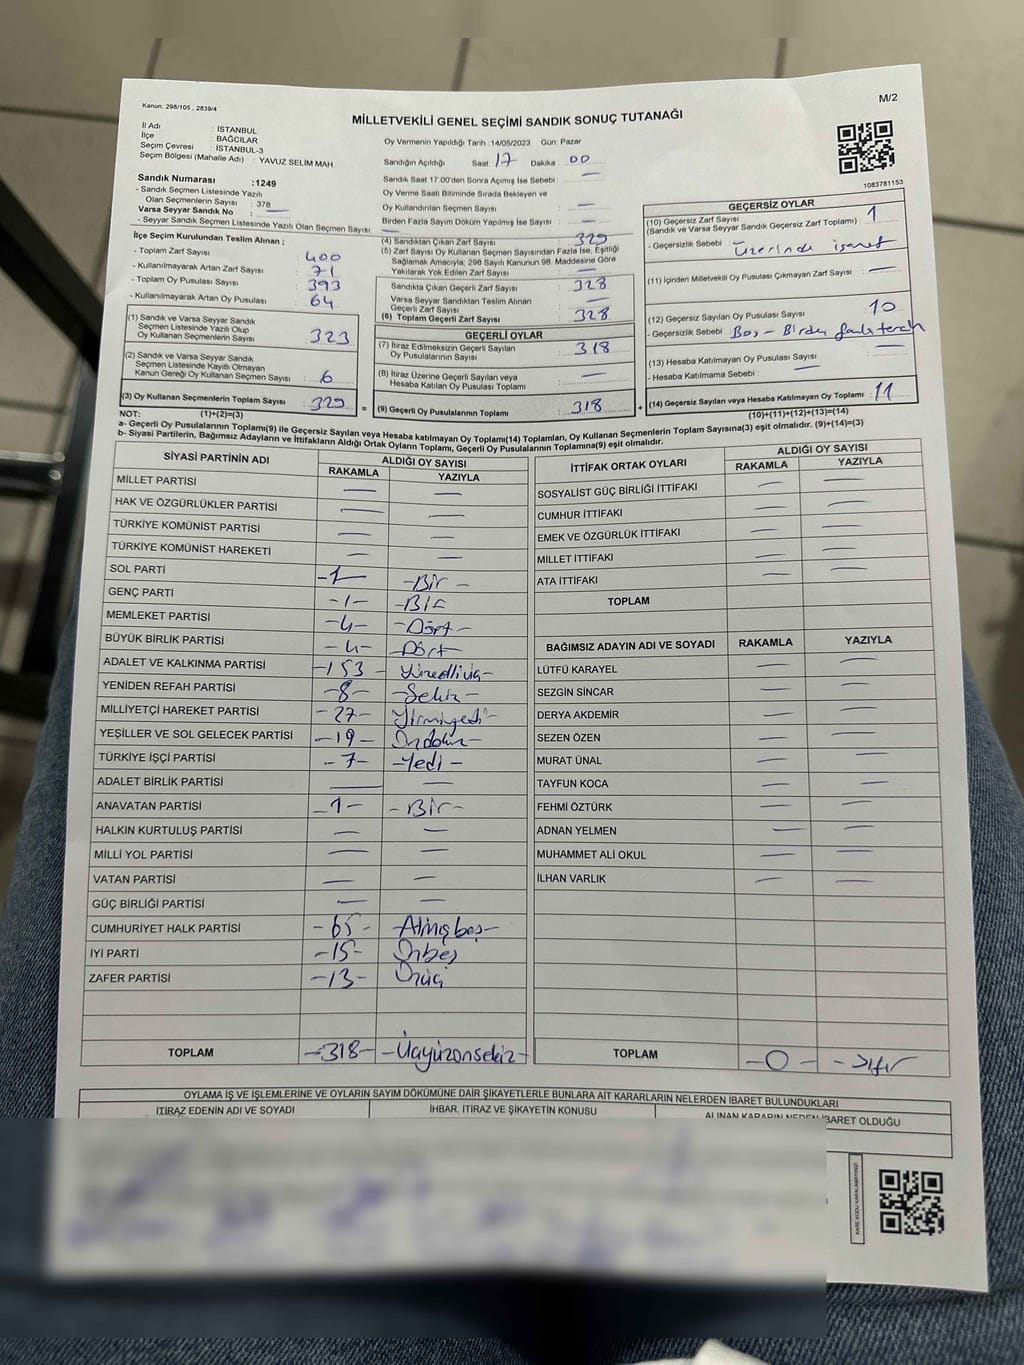 Kanun, 298/105 , 2839/4
M/2
MİLLETVEKİLİ GENEL SEÇİMİ SANDIK SONUÇ TUTANAĞI
İl Adı : İSTANBUL
İlçe : BAĞCILAR
Seçim Çevresi : İSTANBUL-3
Seçim Bölgesi (Mahalle Adı) : YAVUZ SELİM MAH.
Sandık Numarası :1249
- Sandık Seçmen Listesinde Yazılı
Olan Seçmenlerin Sayısı : 378
Varsa Seyyar Sandık No : —
- Seyyar Sandık Seçmen Listesinde Yazılı Olan Seçmen Sayısı : —
Oy Vermenin Yapıldığı Tarih :14/05/2023 Gün: Pazar
Sandığın Açıldığı Saat : 17 Dakika : 00
Sandık Saat 17.00'den Sonra Açımış İse Sebebi : —
Oy Verme Saati Bitiminde Sırada Bekleyen ve
Oy Kullandırılan Seçmen Sayısı : —
Birden Fazla Sayım Döküm Yapılmış İse Sayısı : —
1083781153
İlçe Seçim Kurulundan Teslim Alınan ;
- Toplam Zarf Sayısı : 400
- Kullanılmayarak Artan Zarf Sayısı : 71
- Toplam Oy Pusulası Sayısı : 393
- Kullanılmayarak Artan Oy Pusulası : 64
(1) Sandık ve Varsa Seyyar Sandık
Seçmen Listesinde Yazılı Olup
Oy Kullanan Seçmenlerin Sayısı : 323
(2) Sandık ve Varsa Seyyar Sandık
Seçmen Listesinde Kayıtlı Olmayan
Kanun Gereği Oy Kullanan Seçmen Sayısı : 6
(3) Oy Kullanan Seçmenlerin Toplam Sayısı : 329
(4) Sandıktan Çıkan Zarf Sayısı : 329
(5) Zarf Sayısı Oy Kullanan Seçmen Sayısından Fazla İse, Eşitliği
Sağlamak Amacıyla; 298 Sayılı Kanunun 98. Maddesine Göre
Yakılarak Yok Edilen Zarf Sayısı : —
Sandıkta Çıkan Geçerli Zarf Sayısı : 328
Varsa Seyyar Sandıktan Teslim Alınan
Geçerli Zarf Sayısı : —
(6) Toplam Geçerli Zarf Sayısı : 328
GEÇERLİ OYLAR
(7) İtiraz Edilmeksizin Geçerli Sayılan
Oy Pusulalarının Sayısı : 318
(8) İtiraz Üzerine Geçerli Sayılan veya
Hesaba Katılan Oy Pusulası Toplamı : —
= (9) Geçerli Oy Pusulalarının Toplamı : 318
GEÇERSİZ OYLAR
(10) Geçersiz Zarf Sayısı
(Sandık ve Varsa Seyyar Sandık Geçersiz Zarf Toplamı) : 1
- Geçersizlik Sebebi : Üzerinde işaret
(11) İçinden Milletvekili Oy Pusulası Çıkmayan Zarf Sayısı : —
(12) Geçersiz Sayılan Oy Pusulası Sayısı : 10
- Geçersizlik Sebebi : Boş - Birden fazla tercih
(13) Hesaba Katılmayan Oy Pusulası Sayısı : —
- Hesaba Katılmama Sebebi : —
+ (14) Geçersiz Sayılan veya Hesaba Katılmayan Oy Toplamı : 11
NOT: (1)+(2)=(3)
(10)+(11)+(12)+(13)=(14)
a- Geçerli Oy Pusulalarının Toplamı(9) ile Geçersiz Sayılan veya Hesaba katılmayan Oy Toplamı(14) Toplamları, Oy Kullanan Seçmenlerin Toplam Sayısına(3) eşit olmalıdır. (9)+(14)=(3)
b- Siyasi Partilerin, Bağımsız Adayların ve İttifakların Aldığı Ortak Oyların Toplamı, Geçerli Oy Pusulalarının Toplamına(9) eşit olmalıdır.
SİYASİ PARTİNİN ADI ALDIĞI OY SAYISI
RAKAMLA YAZIYLA
MİLLET PARTİSİ — —
HAK VE ÖZGÜRLÜKLER PARTİSİ — —
TÜRKİYE KOMÜNİST PARTİSİ — —
TÜRKİYE KOMÜNİST HAREKETİ — —
SOL PARTİ -1- -Bir-
GENÇ PARTİ -1- -Bir
MEMLEKET PARTİSİ -4- -Dört-
BÜYÜK BİRLİK PARTİSİ -4- -Dört-
ADALET VE KALKINMA PARTİSİ -153- Yüzelliüç-
YENİDEN REFAH PARTİSİ -8- -Sekiz-
MİLLİYETÇİ HAREKET PARTİSİ -27- -Yirmiyedi-
YEŞİLLER VE SOL GELECEK PARTİSİ -19- -Ondokuz-
TÜRKİYE İŞÇİ PARTİSİ -7- -Yedi-
ADALET BİRLİK PARTİSİ — —
ANAVATAN PARTİSİ -1- -Bir-
HALKIN KURTULUŞ PARTİSİ — —
MİLLİ YOL PARTİSİ — —
VATAN PARTİSİ — —
GÜÇ BİRLİĞİ PARTİSİ — —
CUMHURİYET HALK PARTİSİ -65- -Atmışbeş-
İYİ PARTİ -15- Onbeş
ZAFER PARTİSİ -13- Onüç
TOPLAM -318- -Üçyüzonsekiz-
İTTİFAK ORTAK OYLARI ALDIĞI OY SAYISI
RAKAMLA YAZIYLA
SOSYALİST GÜÇ BİRLİĞİ İTTİFAKI — —
CUMHUR İTTİFAKI — —
EMEK VE ÖZGÜRLÜK İTTİFAKI — —
MİLLET İTTİFAKI — —
ATA İTTİFAKI — —
TOPLAM
BAĞIMSIZ ADAYIN ADI VE SOYADI RAKAMLA YAZIYLA
LÜTFÜ KARAYEL — —
SEZGİN SİNCAR — —
DERYA AKDEMİR — —
SEZEN ÖZEN — —
MURAT ÜNAL — —
TAYFUN KOCA — —
FEHMİ ÖZTÜRK — —
ADNAN YELMEN — —
MUHAMMET ALİ OKUL — —
İLHAN VARLIK — —
TOPLAM -0- -Sıfır
OYLAMA İŞ VE İŞLEMLERİNE VE OYLARIN SAYIM DÖKÜMÜNE DAİR ŞİKAYETLERLE BUNLARA AİT KARARLARIN NELERDEN İBARET BULUNDUKLARI
İTİRAZ EDENİN ADI VE SOYADI İHBAR, İTİRAZ VE ŞİKAYETİN KONUSU ALINAN KARARIN NEDEN İBARET OLDUĞU
KARE KODU KARALAMAYINIZ!